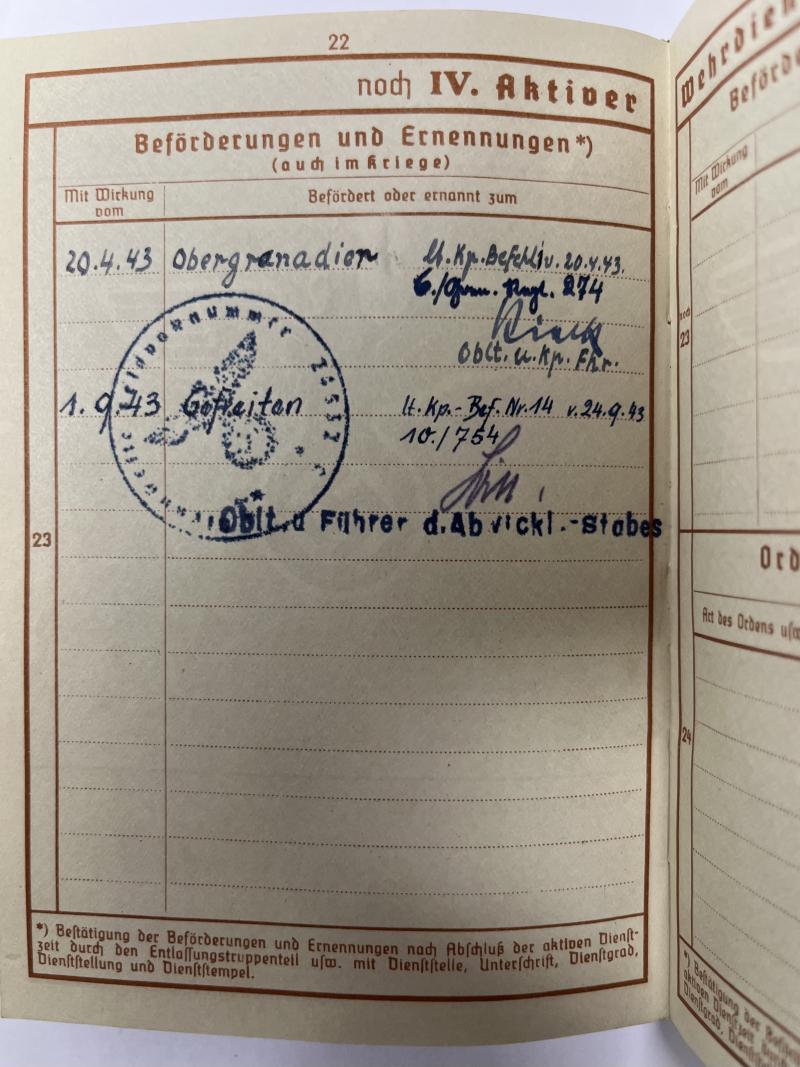 22
noch IV. Aktiver
Beförderungen und Ernennungen*)
(auch im Kriege)
Mit Wirkung vom
Befördert oder ernannt zum
20.4.43 Obergrenadier lt. Kp. Befehl v. 20.4.43.
6./Gren. Regt. 274
Oblt. u. Kp. Fhr.
Feldpostnummer
1.9.43 Gefreiten lt. Kp.-Bef. Nr. 14 v. 24.9.43
10./754
Oblt. u Führer d. Abwickl.-Stabes
23
*) Bestätigung der Beförderungen und Ernennungen nach Abschluß der aktiven Dienst-
zeit durch den Entlassungstruppenteil usw. mit Dienststelle, Unterschrift, Dienstgrad,
Dienststellung und Dienststempel.
Wehrdien
Beförde
Mit Wirkung vom
noch
23
Ord
Art des Ordens usw
24
*) Bestätigung der
aktiven Dienstzeit
Dienstgrad,